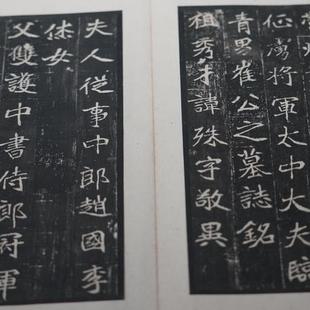 征虜將軍太中大夫臨
青男崔公之墓誌銘
祖秀才諱殊字敬異
夫人從事中郎趙國李
烋女
父雙護中書侍郎冠軍